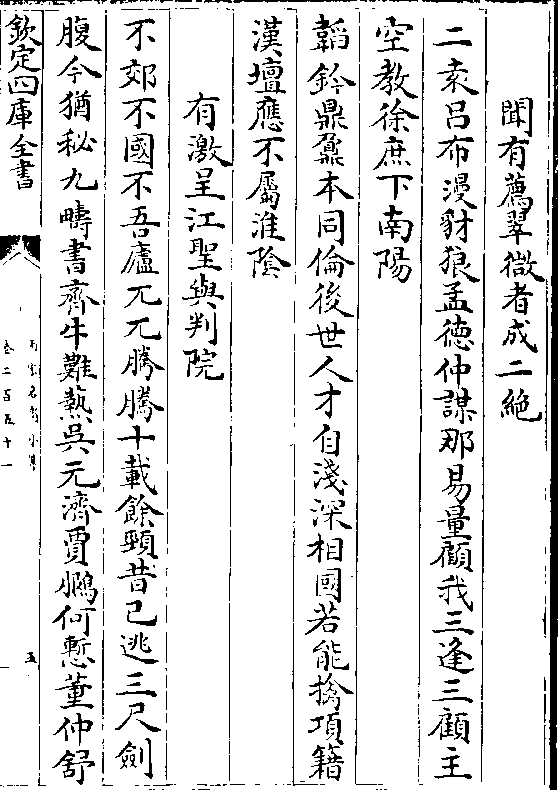 聞有薦翠微者成二絶
二袁吕布漫豺狼孟德仲謀那易量顧我三逢三顧主
空教徐庶下南陽
韜鈐鼎鼐本同倫後世人才自淺深相國若能擒項籍
漢壇應不屬淮陰
有激呈江聖與判院
不郊不國不吾廬兀兀騰騰十載餘頸昔已逃三尺劍
腹今猶秘九疇書齊牛難爇吳元濟賈鵩何慙董仲舒
欽定四庫全書
兩宋名賢小集
卷二百五十一
五